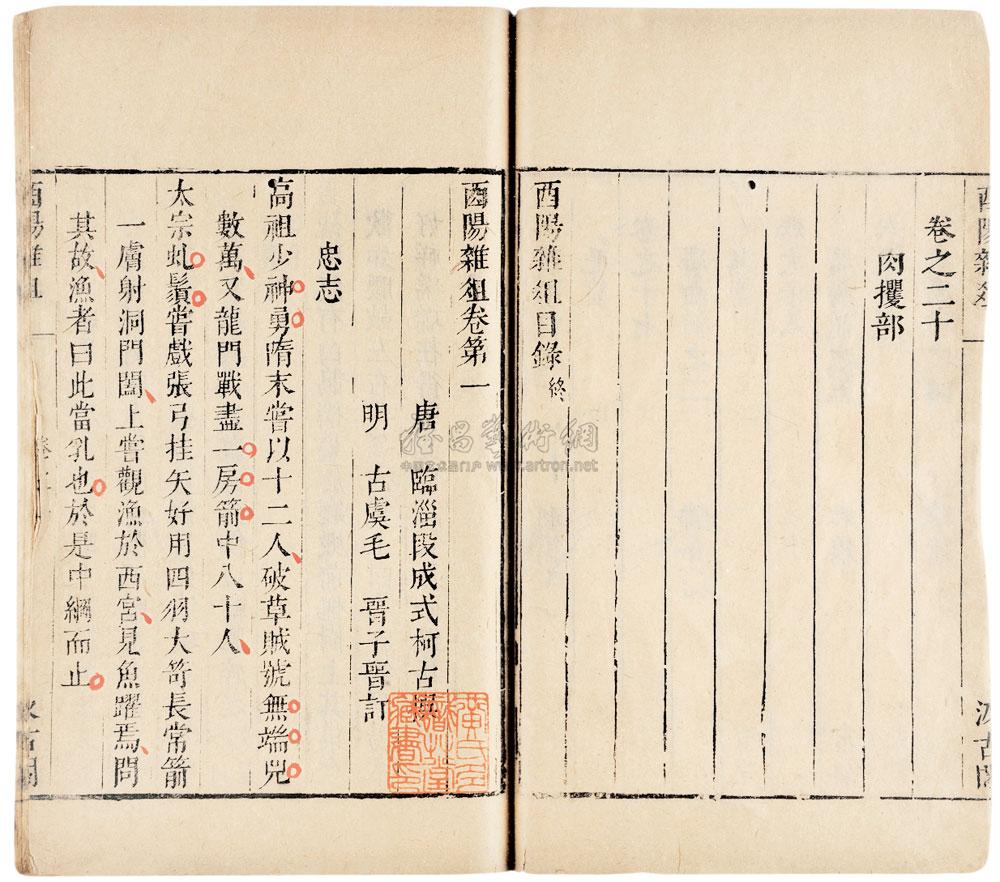 卷之二十
肉攫部
酉陽雜俎目錄終
酉陽雜俎卷第一
唐 臨淄段成式柯古撰
明 古虞毛 晉子晉訂
忠志
高祖少神勇隋末嘗以十二人破草賊號無端兒
數萬又龍門戰盡一房箭中八十人
太宗虬鬚嘗戲張弓挂矢好用四羽大笴長常箭
一膚射洞門闔上嘗觀漁於西宮見魚躍焉問
其故漁者曰此當乳也於是中網而止
酉陽雜俎
汲古閣
www.artron.net